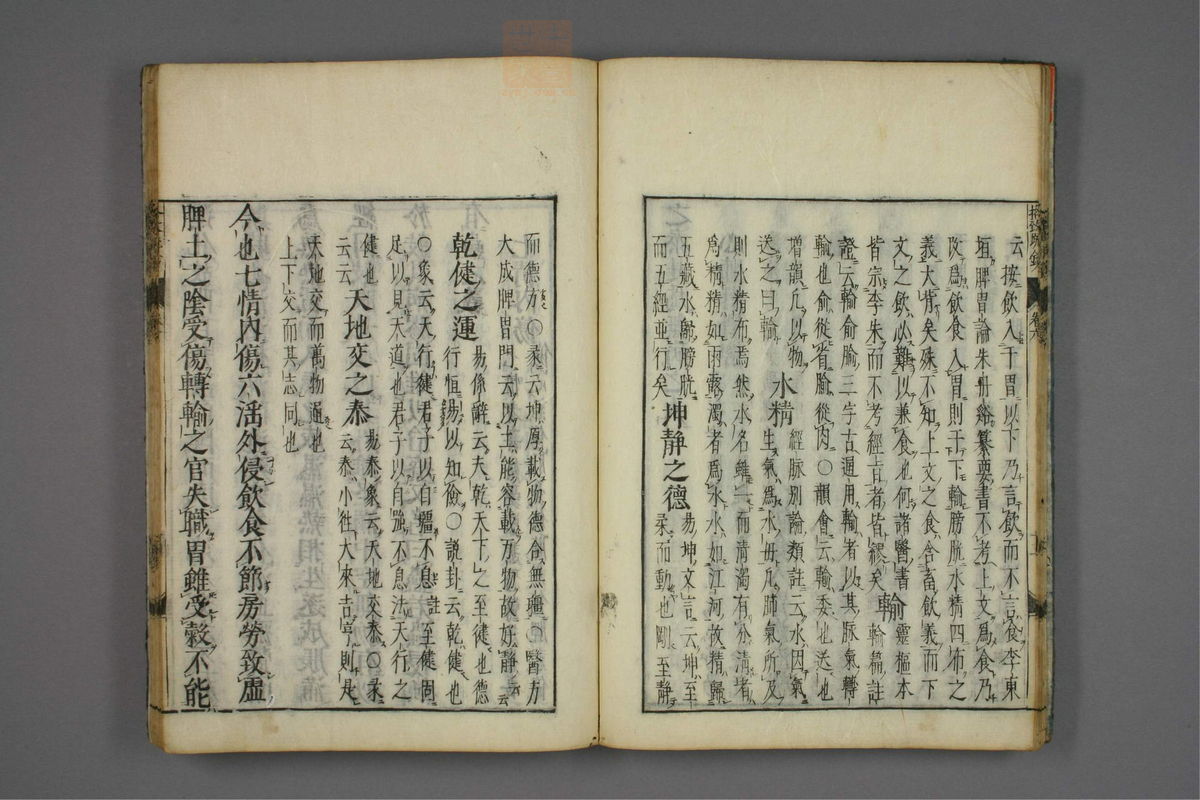 云按飲入于胃以下乃言飲而不言食李東
垣脾胃論朱丹谿纂要書不考上文爲食乃
改爲飲食入胃則于下輸膀胱水精四布之
義大背矣殊不知上文之食含畜飲義而下
文之飲必難以兼食也何諸醫書
皆宗李朱而不考經旨者皆繆矣輸靈樞本
輸篇註
證云輸俞腧三字古通用輸者以其脈氣轉
輸也俞從省腧從肉○韻會云輸委也送也
增韻凡以物
送之曰輸水精經脈別論類註云水因氣
生氣爲水母凡肺氣所及
則水精布焉然水名雖一而清濁有分清者
爲精精如雨露濁者爲水水如江河故精歸
五藏水歸膀胱
而五經並行矣坤靜之德易坤文言云坤至
柔而動也剛至靜
而德方○彖云坤厚載物德合無疆○醫方
大成脾胃門云以土能容載万物故好靜云
乾健之運易係辭云夫乾天下之至健也德
行恒易以知儉○說卦云乾健也
○象云天行健君子以自強不息註至健固
足以見天道也君子以自強不息法天行之
健也
云云天地交之泰易泰象云天地交泰○彖
云泰小往大來吉亨則是
天地交而萬物通也
上下交而其志同也
今也七情內傷六淫外侵飲食不節房勞致虛
脾土之陰受傷轉輸之官失職胃雖受穀不能